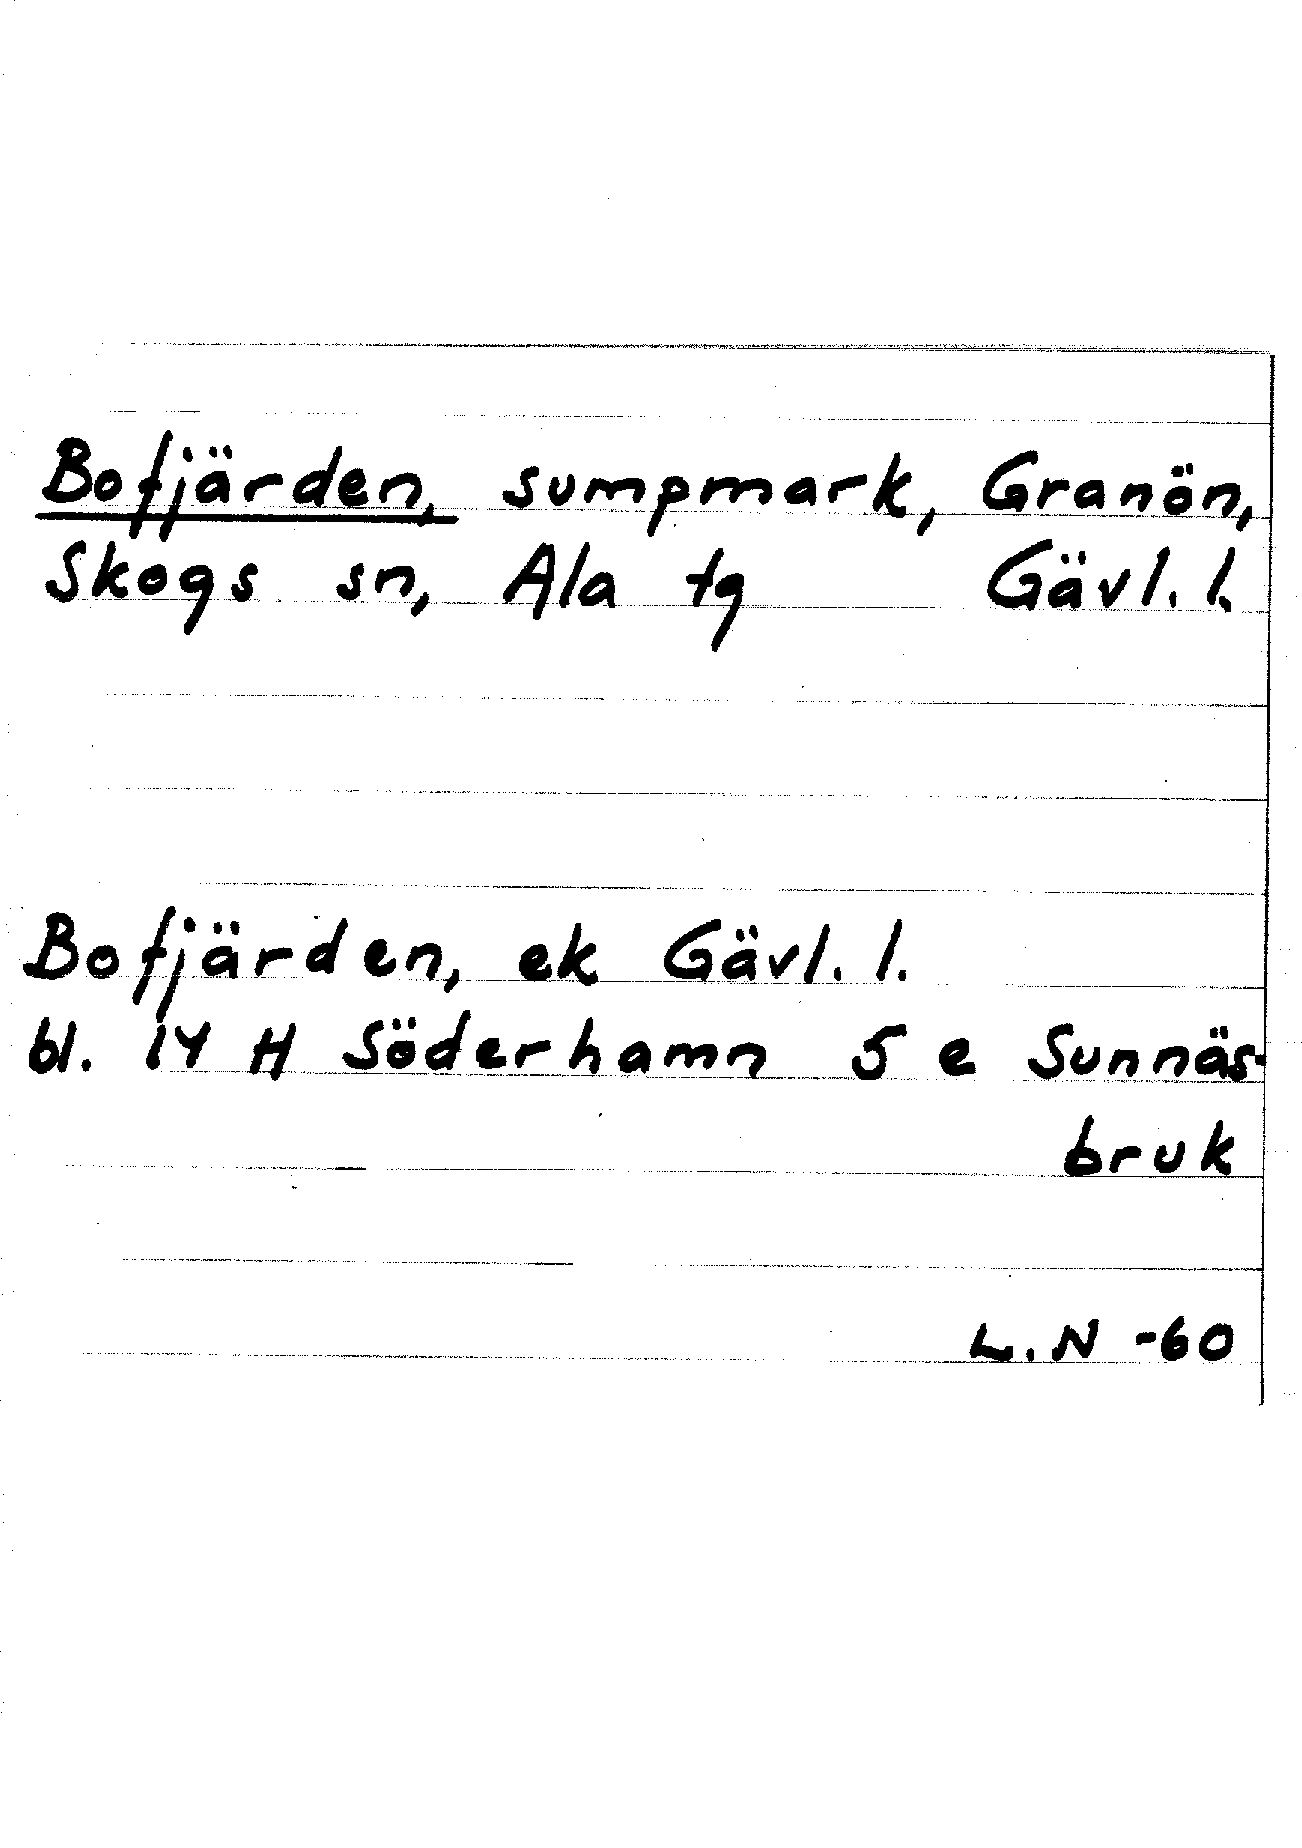 Bofjärden, sumpmark, Granön,
Skogs sn, Ala tg Gävl. l.
Bofjärden, ek Gävl. l.
bl. 14 H Söderhamn 5 e Sunnäs-
bruk
L.N -60